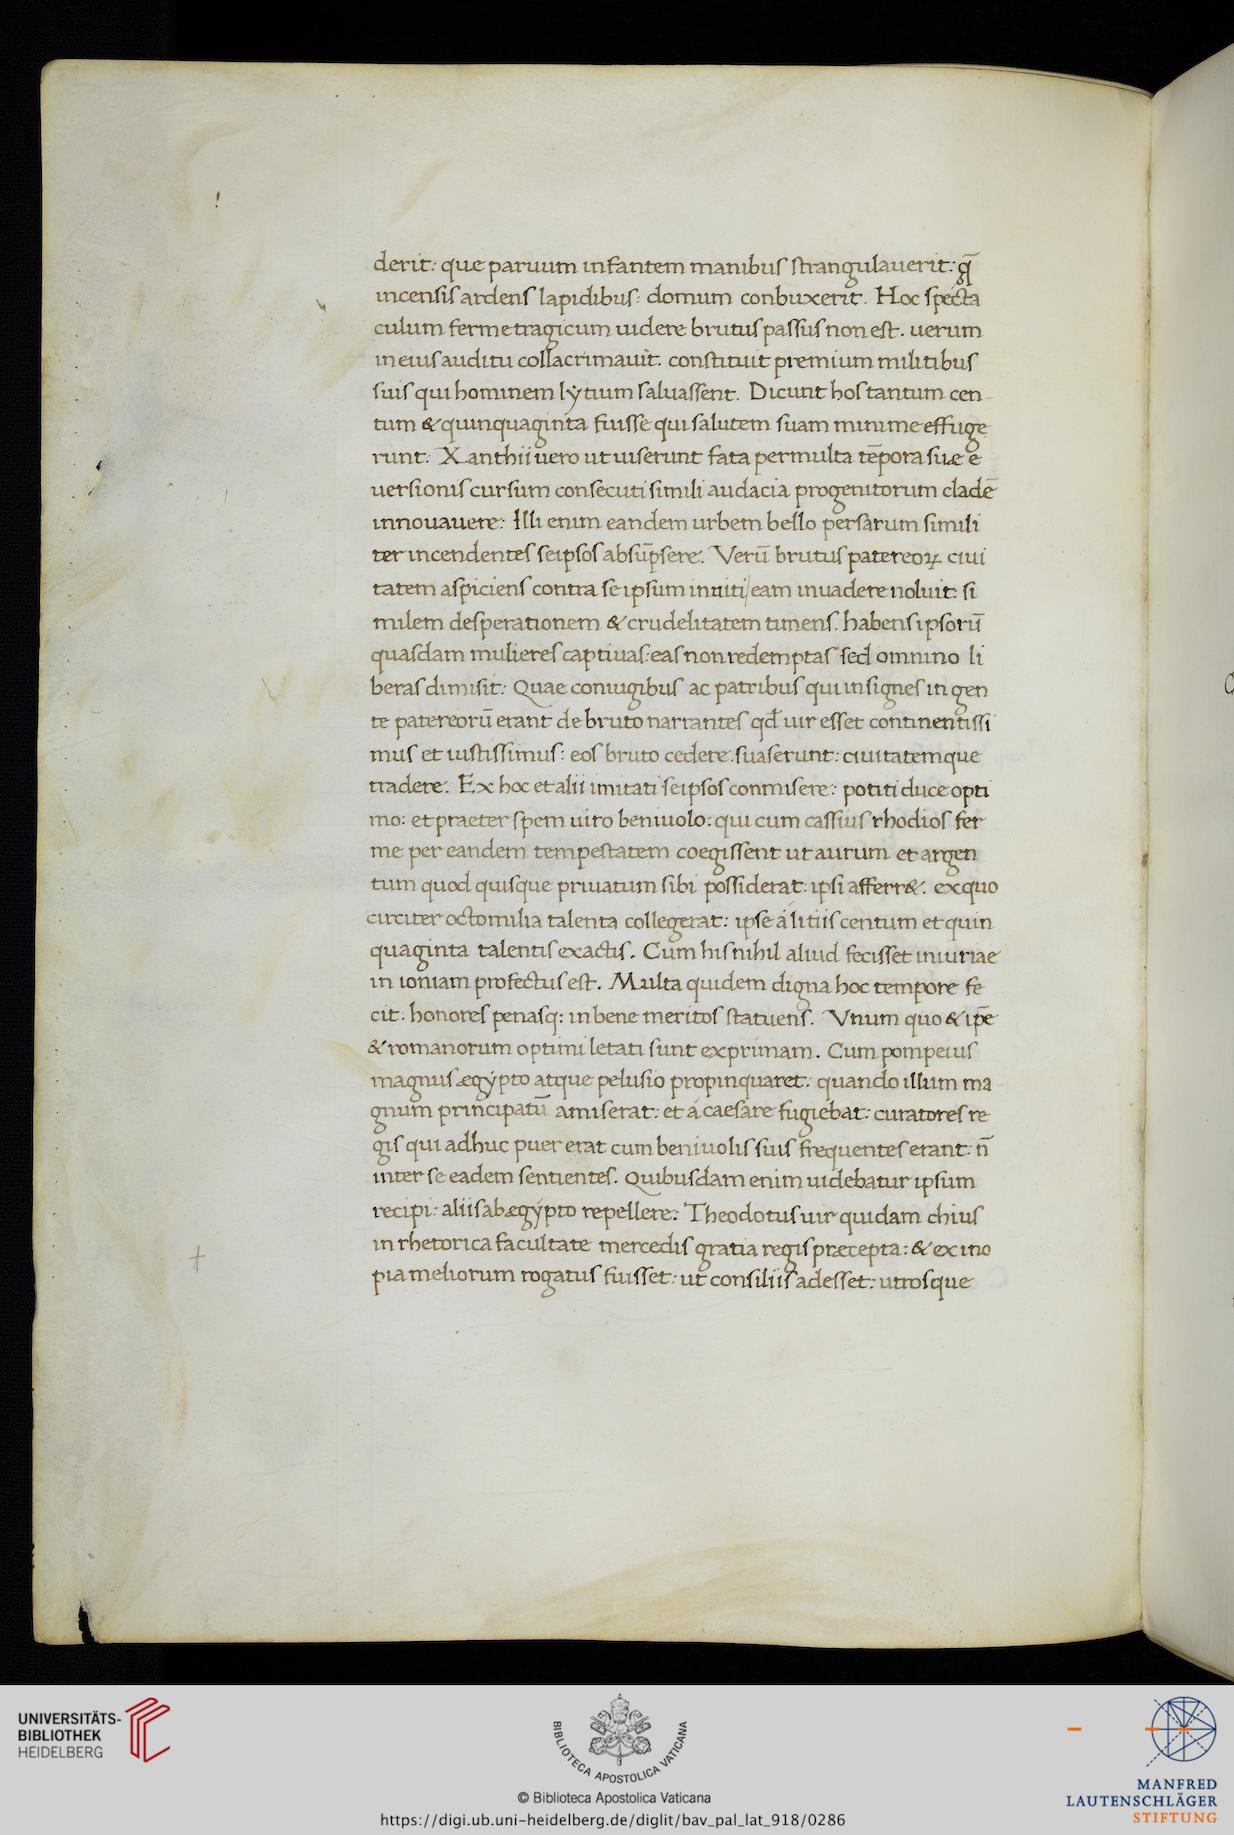 derit: que paruum infantem manibus strangulauerit: q̄
incensis ardens lapidibus: domum conbuxerit. Hoc specta
culum ferme tragicum uidere brutus passus non est. uerum
in eius auditu collacrimauit. constituit premium militibus
suis qui hominem lytium saluassent. Dicunt hos tantum cen
tum & quinquaginta fuisse qui salutem suam minime effuge
runt. Xanthii uero ut uiserunt fata permulta tēpora suæ e
uersionis cursum consecuti simili audacia progenitorum cladē
innouauere: Illi enim eandem urbem bello persarum simili
ter incendentes seipsos absūpsere. Verū brutus patereoꝝ ciui
tatem aspiciens contra se ipsum inniti eam inuadere noluit: si
milem desperationem & crudelitatem timens. habens ipsorū
quasdam mulieres captiuas: eas non redemptas sed omnino li
beras dimisit: Quae coniugibus ac patribus qui insignes in gen
te patereorū erant de bruto narrantes qđ uir esset continentissi
mus et iustissimus: eos bruto cedere suaserunt: ciuitatemque
tradere. Ex hoc et alii imitati seipsos conmisere: potiti duce opti
mo: et praeter spem uiro beniuolo: qui cum cassius rhodios fer
me per eandem tempestatem coegissent ut aurum et argen
tum quod quisque priuatum sibi possiderat: ipsi afferr&. ex quo
circiter octomilia talenta collegerat: ipse á litiis centum et quin
quaginta talentis exactis. Cum his nihil aliud fecisset iniuriae
in ioniam profectus est. Multa quidem digna hoc tempore fe
cit. honores penasq: in bene meritos statuens. Vnum quo & ip̄e
& romanorum optimi letati sunt exprimam. Cum pompeius
magnus ægypto atque pelusio propinquaret: quando illum ma
gnum principatū amiserat: et á caesare fugiebat: curatores re
gis qui adhuc puer erat cum beniuolis suis frequentes erant: n̄
inter se eadem sentientes. Quibusdam enim uidebatur ipsum
recipi: aliis ab ægypto repellere: Theodotus uir quidam chius
in rhetorica facultate mercedis gratia regis præcepta: & ex ino
pia meliorum rogatus fuisset: ut consiliis adesset: utrosque
UNIVERSITÄTS-
BIBLIOTHEK
HEIDELBERG
BIBLIOTECA APOSTOLICA VATICANA
© Biblioteca Apostolica Vaticana
https://digi.ub.uni-heidelberg.de/diglit/bav_pal_lat_918/0286
MANFRED
LAUTENSCHLÄGER
STIFTUNG